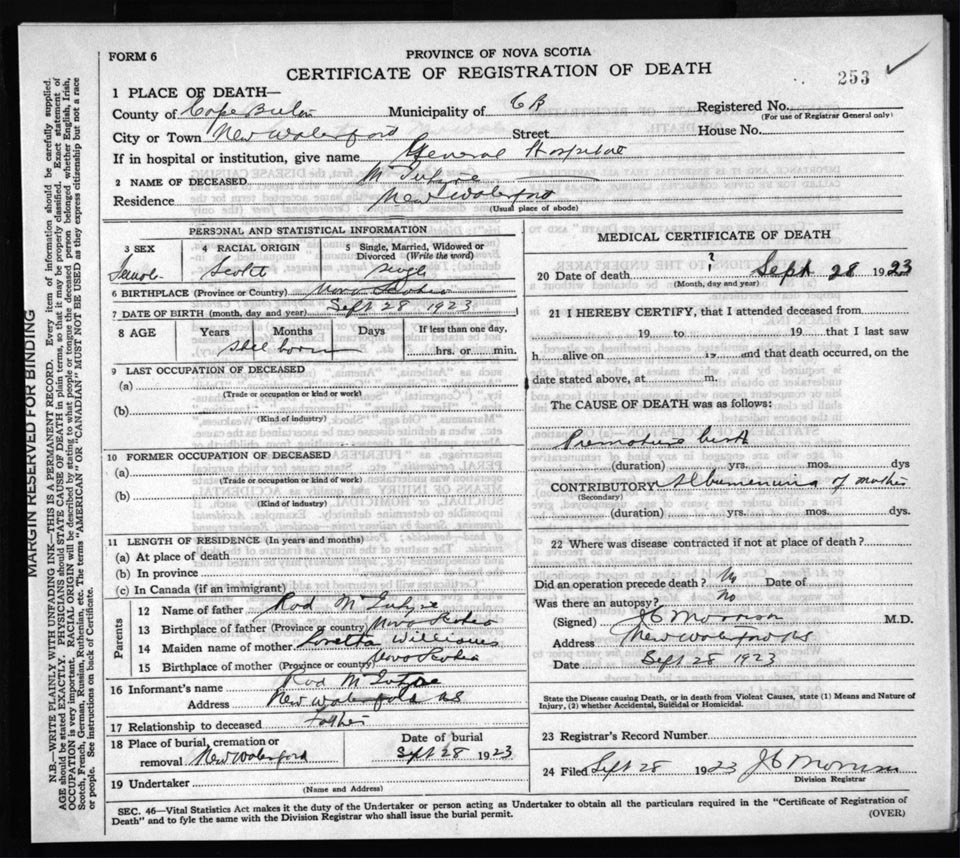 FORM 6
PROVINCE OF NOVA SCOTIA
CERTIFICATE OF REGISTRATION OF DEATH
253
1 PLACE OF DEATH—
County of Cape Breton Municipality of CB Registered No.
(For use of Registrar General only)
City or Town New Waterford Street House No.
If in hospital or institution, give name General Hospital
2 NAME OF DECEASED McIntyre
Residence New Waterford
(Usual place of abode)
PERSONAL AND STATISTICAL INFORMATION
3 SEX 4 RACIAL ORIGIN 5 Single, Married, Widowed or Divorced (Write the word)
Female Scotch Single
6 BIRTHPLACE (Province or Country) Nova Scotia
7 DATE OF BIRTH (month, day and year) Sept 28 1923
8 AGE Years Months Days If less than one day,
hrs. or min.
Still born
9 LAST OCCUPATION OF DECEASED
(a)
(Trade or occupation or kind or work)
(b)
(Kind of industry)
10 FORMER OCCUPATION OF DECEASED
(a)
(Trade or occupation or kind or work)
(b)
(Kind of industry)
11 LENGTH OF RESIDENCE (In years and months)
(a) At place of death
(b) In province
(c) In Canada (if an immigrant)
Parents
12 Name of father Rod McIntyre
13 Birthplace of father (Province or country) Nova Scotia
14 Maiden name of mother Loretta Williams
15 Birthplace of mother (Province or country) Nova Scotia
16 Informant's name Rod McIntyre
Address New Waterford NS
17 Relationship to deceased Father
18 Place of burial, cremation or removal New Waterford
Date of burial
Sept 28 1923
19 Undertaker
(Name and Address)
MEDICAL CERTIFICATE OF DEATH
20 Date of death ? Sept 28 1923
(Month, day and year)
21 I HEREBY CERTIFY, that I attended deceased from
19 to 19 that I last saw
h alive on 19 and that death occurred, on the
date stated above, at m.
The CAUSE OF DEATH was as follows:
Premature birth
(duration) yrs. mos. dys
CONTRIBUTORY Albumenuria of mother
(Secondary)
(duration) yrs. mos. dys.
22 Where was disease contracted if not at place of death?
Did an operation precede death? No Date of
Was there an autopsy? No
(Signed) J C Morrison M.D.
Address New Waterford NS
Date Sept 28 1923
State the Disease causing Death, or in death from Violent Causes, state (1) Means and Nature of
Injury, (2) whether Accidental, Suicidal or Homicidal.
23 Registrar's Record Number
24 Filed Sept 28 1923 J C Morrison
Division Registrar
SEC. 46—Vital Statistics Act makes it the duty of the Undertaker or person acting as Undertaker to obtain all the particulars required in the "Certificate of Registration of
Death" and to fyle the same with the Division Registrar who shall issue the burial permit.
(OVER)
MARGIN RESERVED FOR BINDING
N.B.—WRITE PLAINLY WITH UNFADING INK—THIS IS A PERMANENT RECORD. Every item of information should be carefully supplied.
AGE should be stated EXACTLY. PHYSICIANS should STATE CAUSE OF DEATH in plain terms, so that it may be properly classified. Exact statement of
OCCUPATION is very important. RACIAL ORIGIN will be described by stating to what people or tongue the deceased person belonged whether English, Irish,
Scotch, French, German, Russian, Ruthenian, etc. The terms "AMERICAN" OR "CANADIAN" MUST NOT BE USED as they express citizenship but not a race
or people. See instructions on back of Certificate.